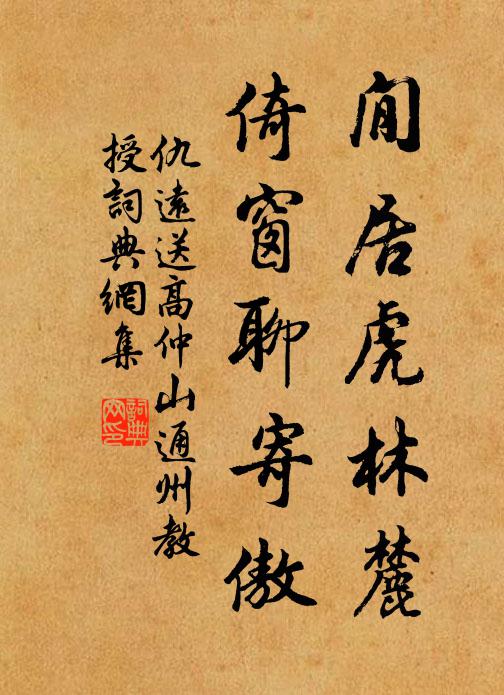 閒居虎林麓
倚窗聊寄傲
仇遠送高仲山通州教
授詞典網集
詞典
网印